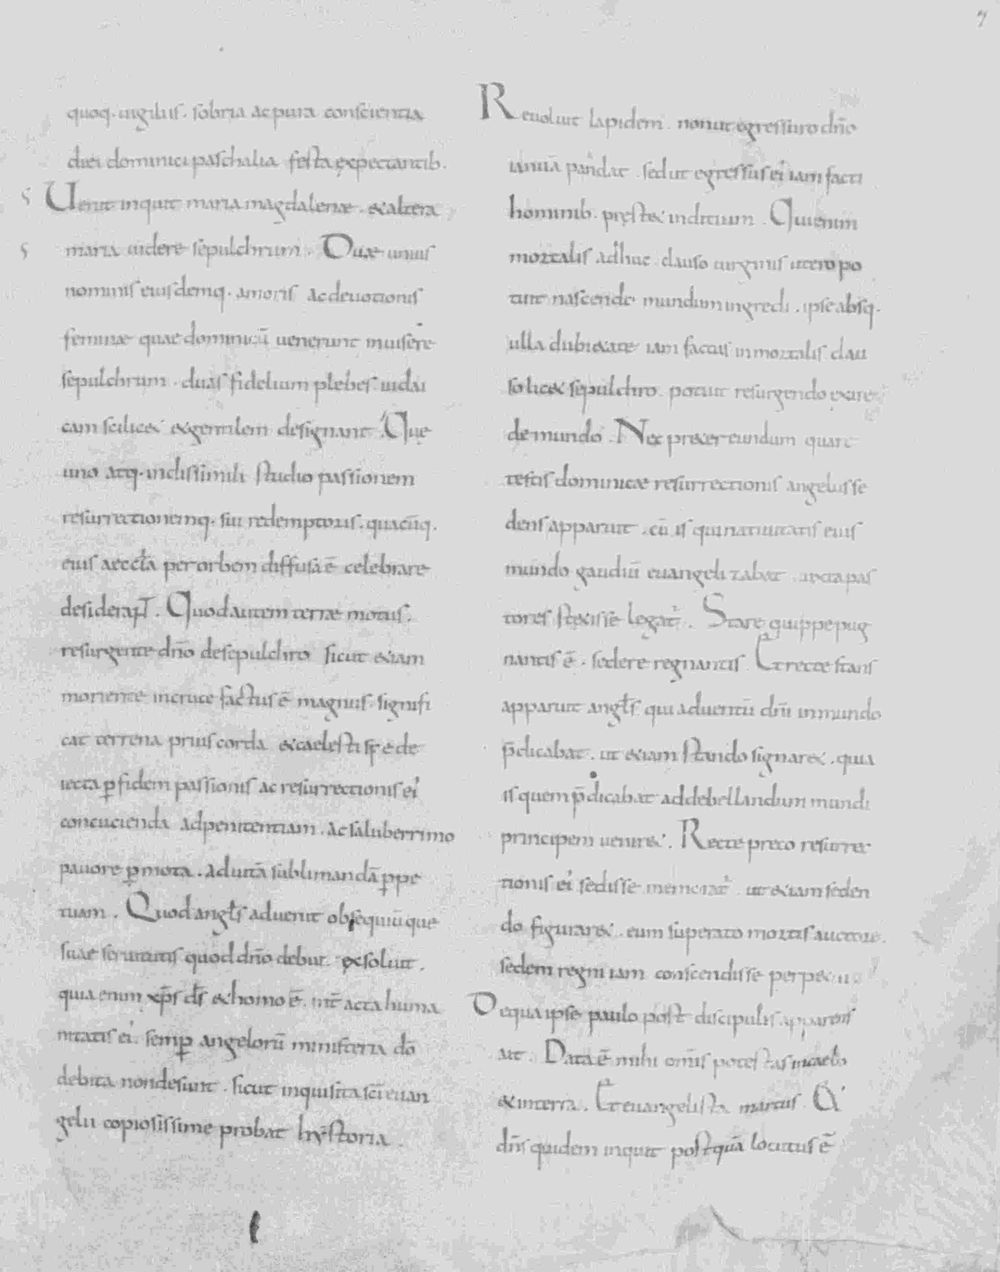 7
quoq· uigiliis· sobria ac pura conscientia
diei dominici paschalia festa expectantib·
Uenit inquit maria magdalenae· & altera
maria uidere sepulchrum. Duae unius
nominis eiusdemq· amoris ac deuotionis
feminae quae dominicū uenerunt inuisere
sepulchrum· duas fidelium plebes iudai
cam scilic& & gentilem designant. Que
uno atq· indissimili studio passionem
resurrectionemq· sui redemptoris· quacūq·
eius aeccla per orbem diffusa ē celebrare
desiderant. Quod autem terrae motus·
resurgente dn̄o de sepulchro sicut &iam
moriente in cruce factus ē magnus· signifi
cat terrena prius corda & caelesti spe de
iecta p̱ fidem passionis ac resurrectionis ei'
concucienda ad penitentiam· ac saluberrimo
pauore p̱mota· ad uitā sublimandā p̱pe
tuam. Quod angl̄s aduenit obsequiū que
suae seruitutis quod dn̄o debuit· exsoluit·
quia enim xp̄s d̄s & homo ē· int̄ acta huma
nitatis ei'· semp̱ angelorū ministeria dō
debita non desunt· sicut inquisita sc̄i euan
gelii copiosissime probat hystoria.
Reuoluit lapidem· non ut egressuro dn̄o
ianuā pandat· sed ut egressus ei' iam facti
hominib· prest& inditium. Qui enim
mortalis adhuc clauso uirginis utero po
tuit nascendo mundum ingredi· ipse absq·
ulla dubi&ate iam factus inmortalis clau
so lic& sepulchro potuit resurgendo exire
de mundo. Nec pr&ereundum quare
testis dominicae resurrectionis angelus se
dens apparuit· cū is qui natiuitatis eius
mundo gaudiū euangelizabat iuxta pas
tores st&isse legat'. Stare quippe pug
nantis ē· sedere regnantis. Et recte stans
apparuit angl̄s qui aduentū dn̄i in mundo
p̄dicabat· ut &iam stando signar&· quia
is quem p̄dicabat ad debellandum mundi
principem uenir&. Recte preco resurrec
tionis ei' sedisse memorat' ut &iam seden
do figurar&· eum superato mortis auctore·
sedem regni iam conscendisse perp&ui·
De qua ipse paulo post discipulis apparens
ait. Data ē mihi om̄is potestas in caelo
& in terra. Et euangelista marcus. Et
dn̄s quidem inquit postquā locutus ē